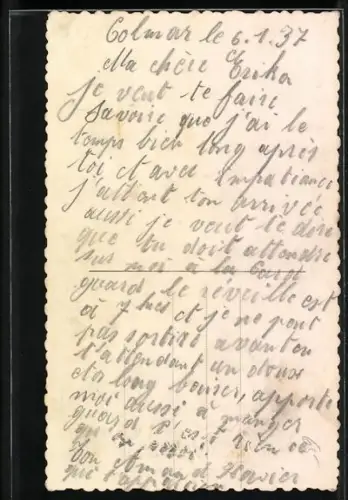 Colmar le 6.1.37
Ma chère Erika
je veut te faire
savoire que j'ai le
temps bien long après
toi et avec impatience
j'attent ton arrivée
aussi je veut te dire
que tu doit attendre
sur moi a la
quard le réveille est
à 7 hes et je ne peut
pas sortire avant en
t'attendant un doux
et long baiser, apporte
moi aussi à manger
quard
Ton Amand